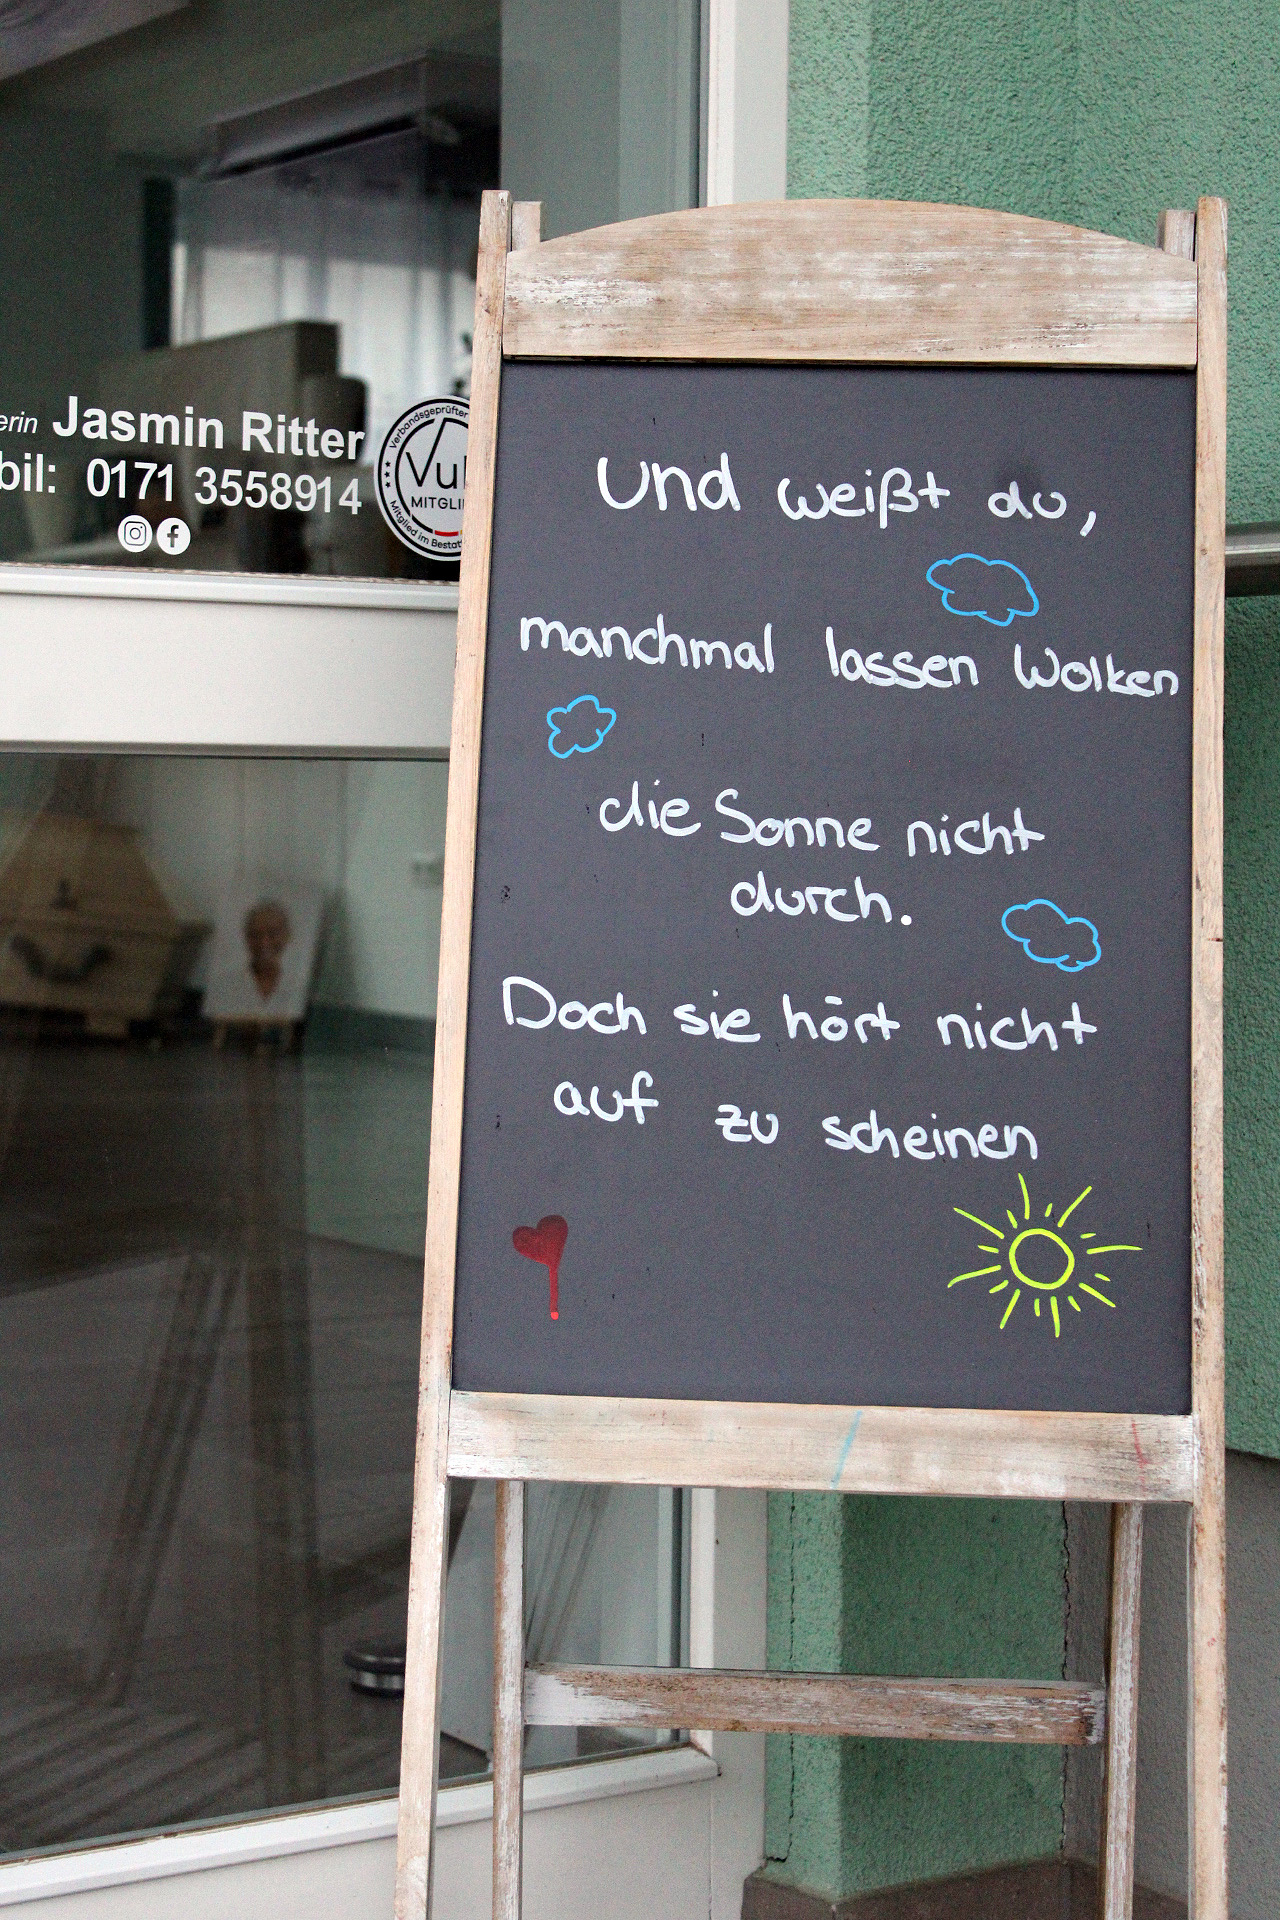 erin Jasmin Ritter
bil: 0171 3558914
Verbandsgeprüfter
Vul
MITGLI
Mitglied im Bestat
Und weißt du,
manchmal lassen Wolken
die Sonne nicht
durch.
Doch sie hört nicht
auf zu scheinen